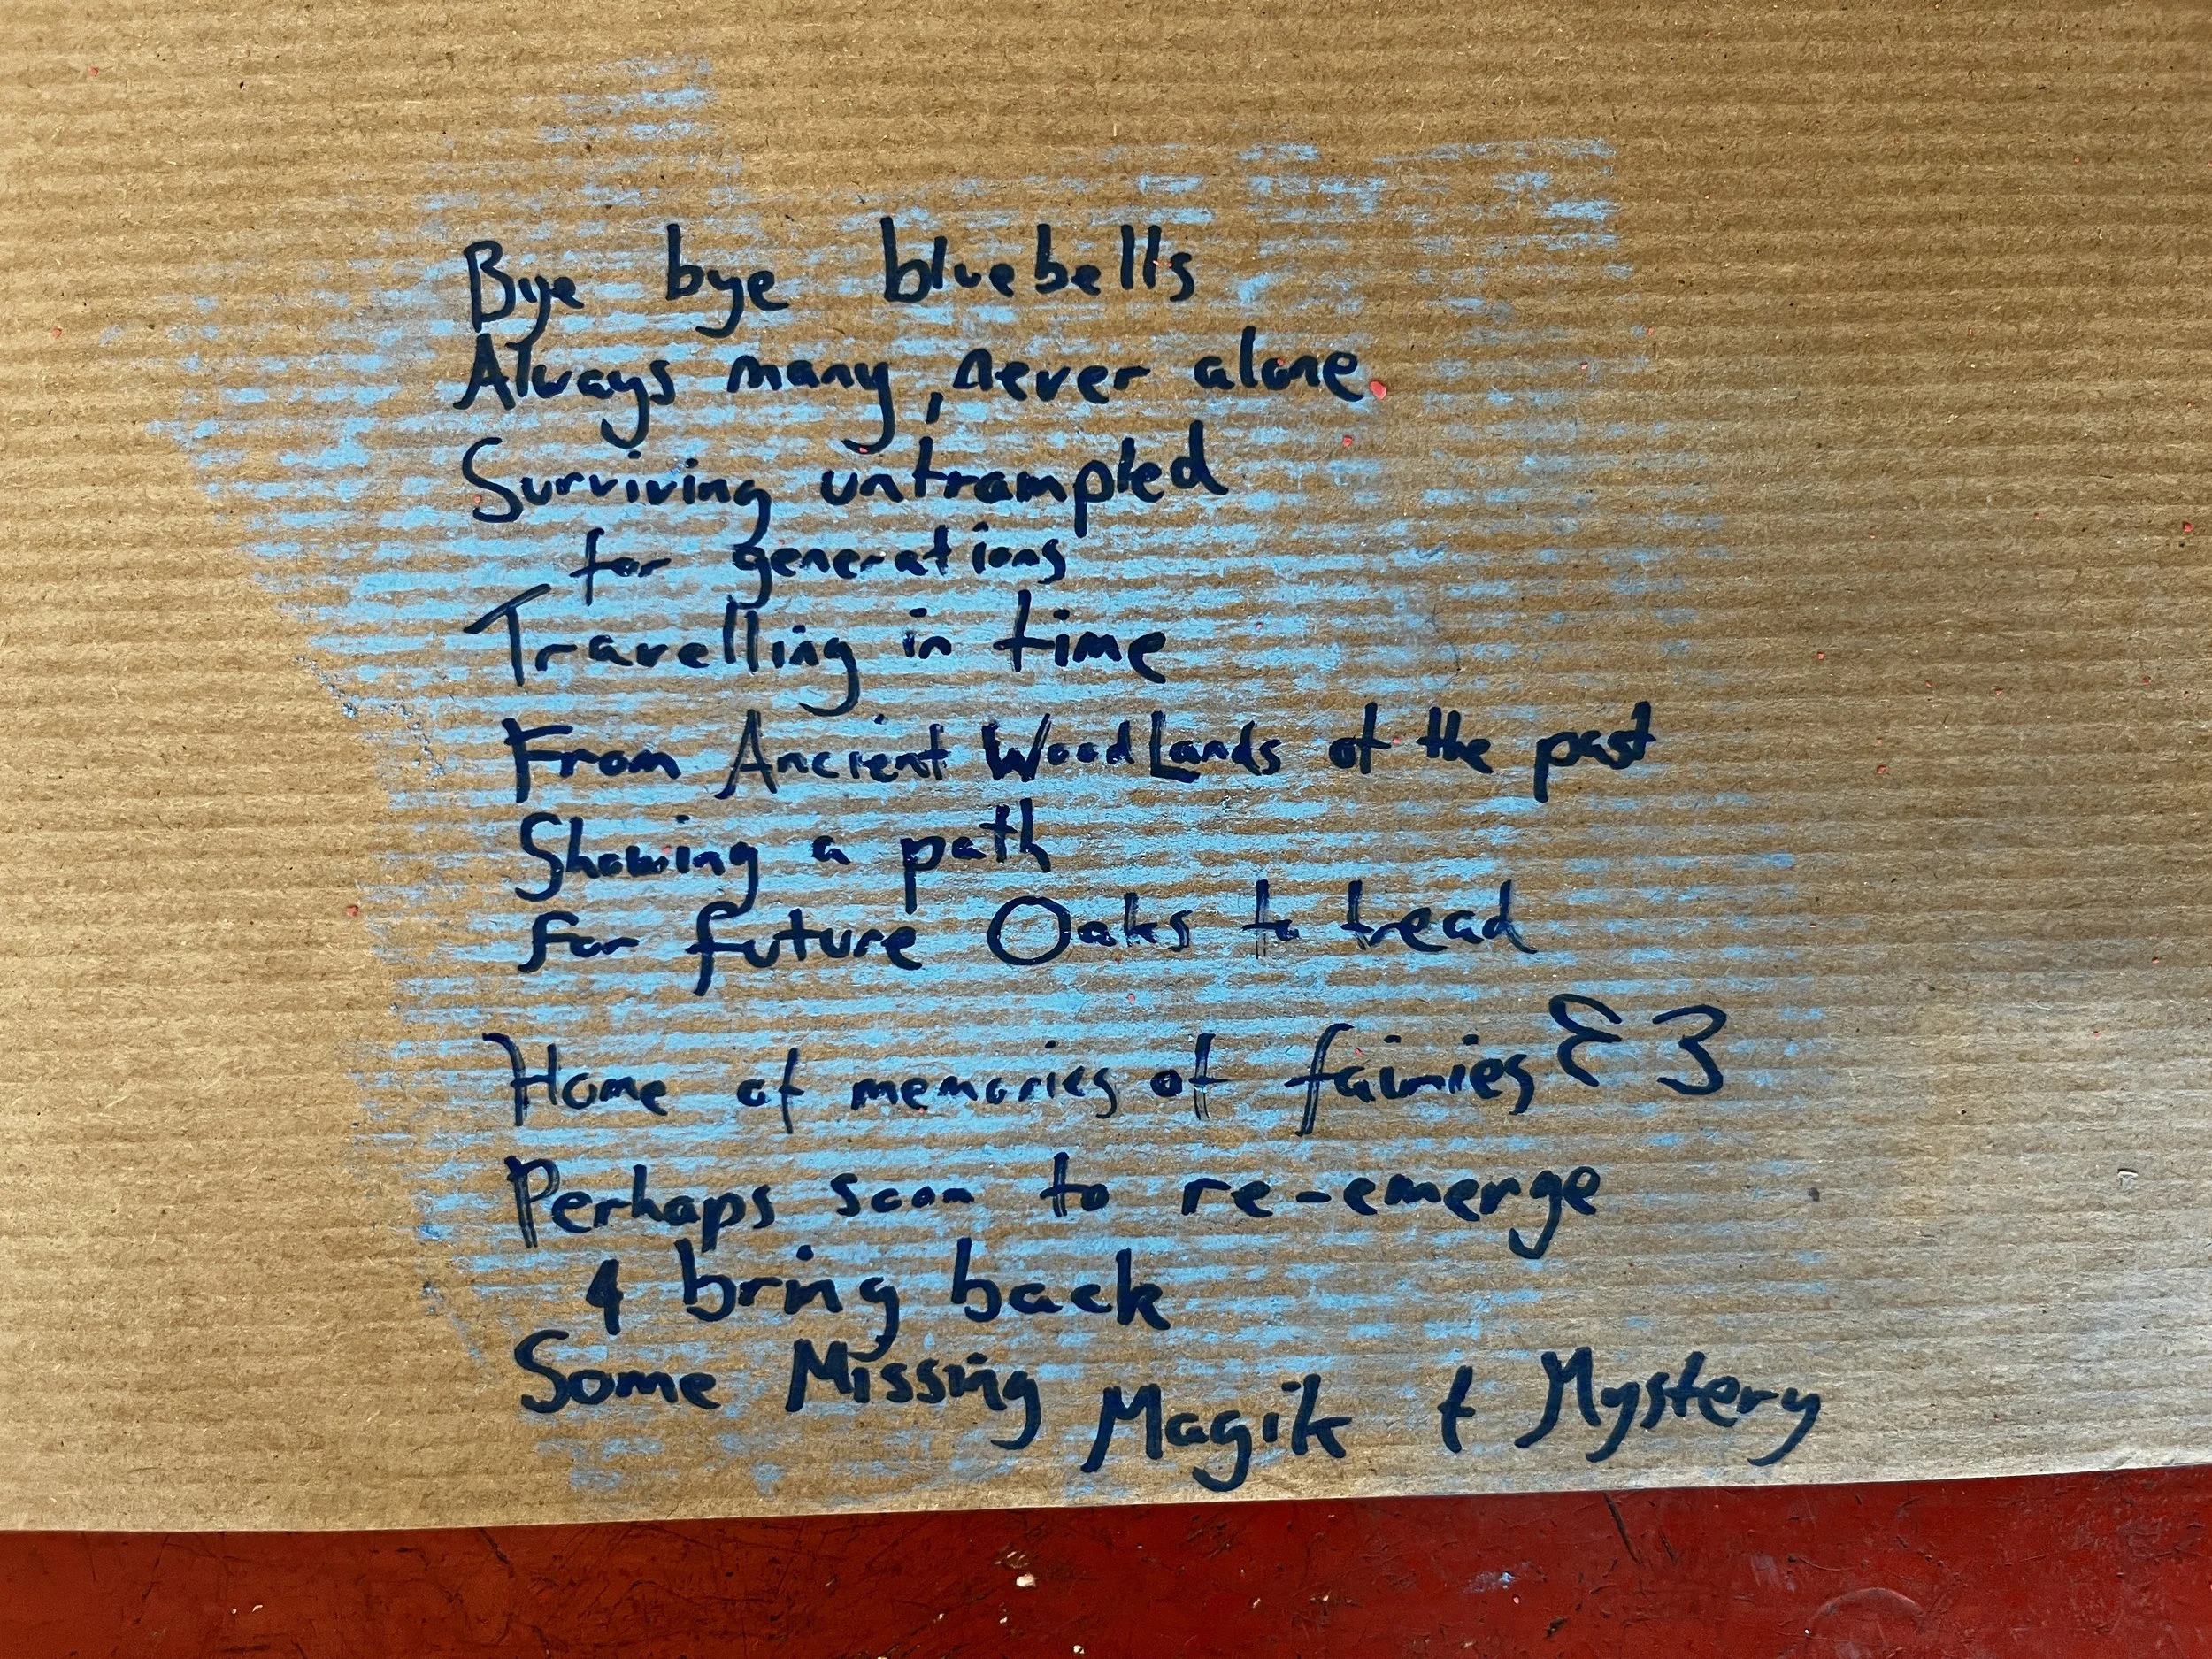 Bye bye bluebells
Always many, never alone
Surviving untrampled
for generations
Travelling in time
From Ancient WoodLands of the past
Showing a path
for future Oaks to tread
Home of memories of fairies
Perhaps soon to re-emerge
& bring back
Some Missing Magik & Mystery